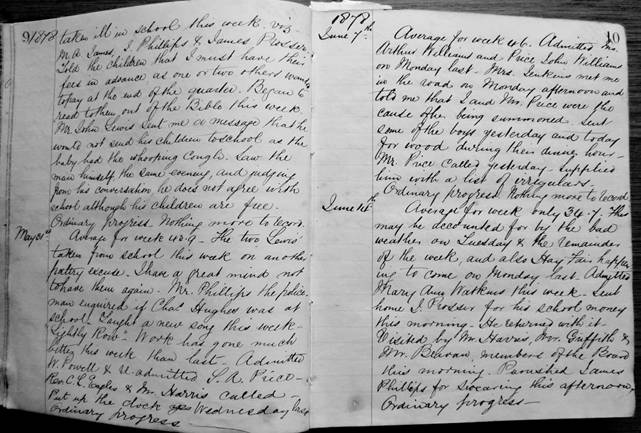 9/1878 taken ill in school this week, viz-
M.A. James, J. Phillips & James Prosser.
Told the children that I must have their
fees in advance as one or two others wanted
to pay at the end of the quarter. Began to
read to them out of the Bible this week.
Mr. John Lewis sent me a message that he
would not send his children to school as the
baby had the whooping Cough. Saw the
man himself the same evening, and judging
from his conversation he does not agree with
school although his children are free.
Ordinary Progress. Nothing more to record.
May 31st Average for week 43.9. The two Lewis'
taken from school this week on another
paltry excuse. I have a great mind not
to have them again. Mr. Phillips the police
man enquired if Chas Hughes was at
school. Taught a new song this week-
Lightly Row. Work has gone much
better this week than last. Admitted
W. Powell & re-admitted S.A. Price-
Rev. C.L. Eagles & Mr. Harris called-
Put up the clock Wednesday last
Ordinary progress-
1878 10
June 7th Average for week 46. Admitted
Arthur Williams and Price John Williams
on Monday last. Mrs. Jenkins met me
in the road on Monday afternoon and
told me that I and Mr. Price were the
cause of her being summoned. Sent
some of the boys yesterday and today
for wood during their dinner hour-
Mr. Price called yesterday- supplied
him with a list of irregulars.
Ordinary progress. Nothing more to record
June 14th Average for week only 34.7. This
may be accounted for by the bad
weather on Tuesday & the remainder
of the week, and also Hay Fair happen
ing to come on Monday last. Admitted
Mary Ann Watkins this week- sent
home J. Prosser for his school money
this morning- He returned with it-
Visited by Mr. Harris, Mr. Griffiths &
Mr. Bevan, members of the Board
this morning. Punished James
Phillips for swearing this afternoon.
Ordinary progress-